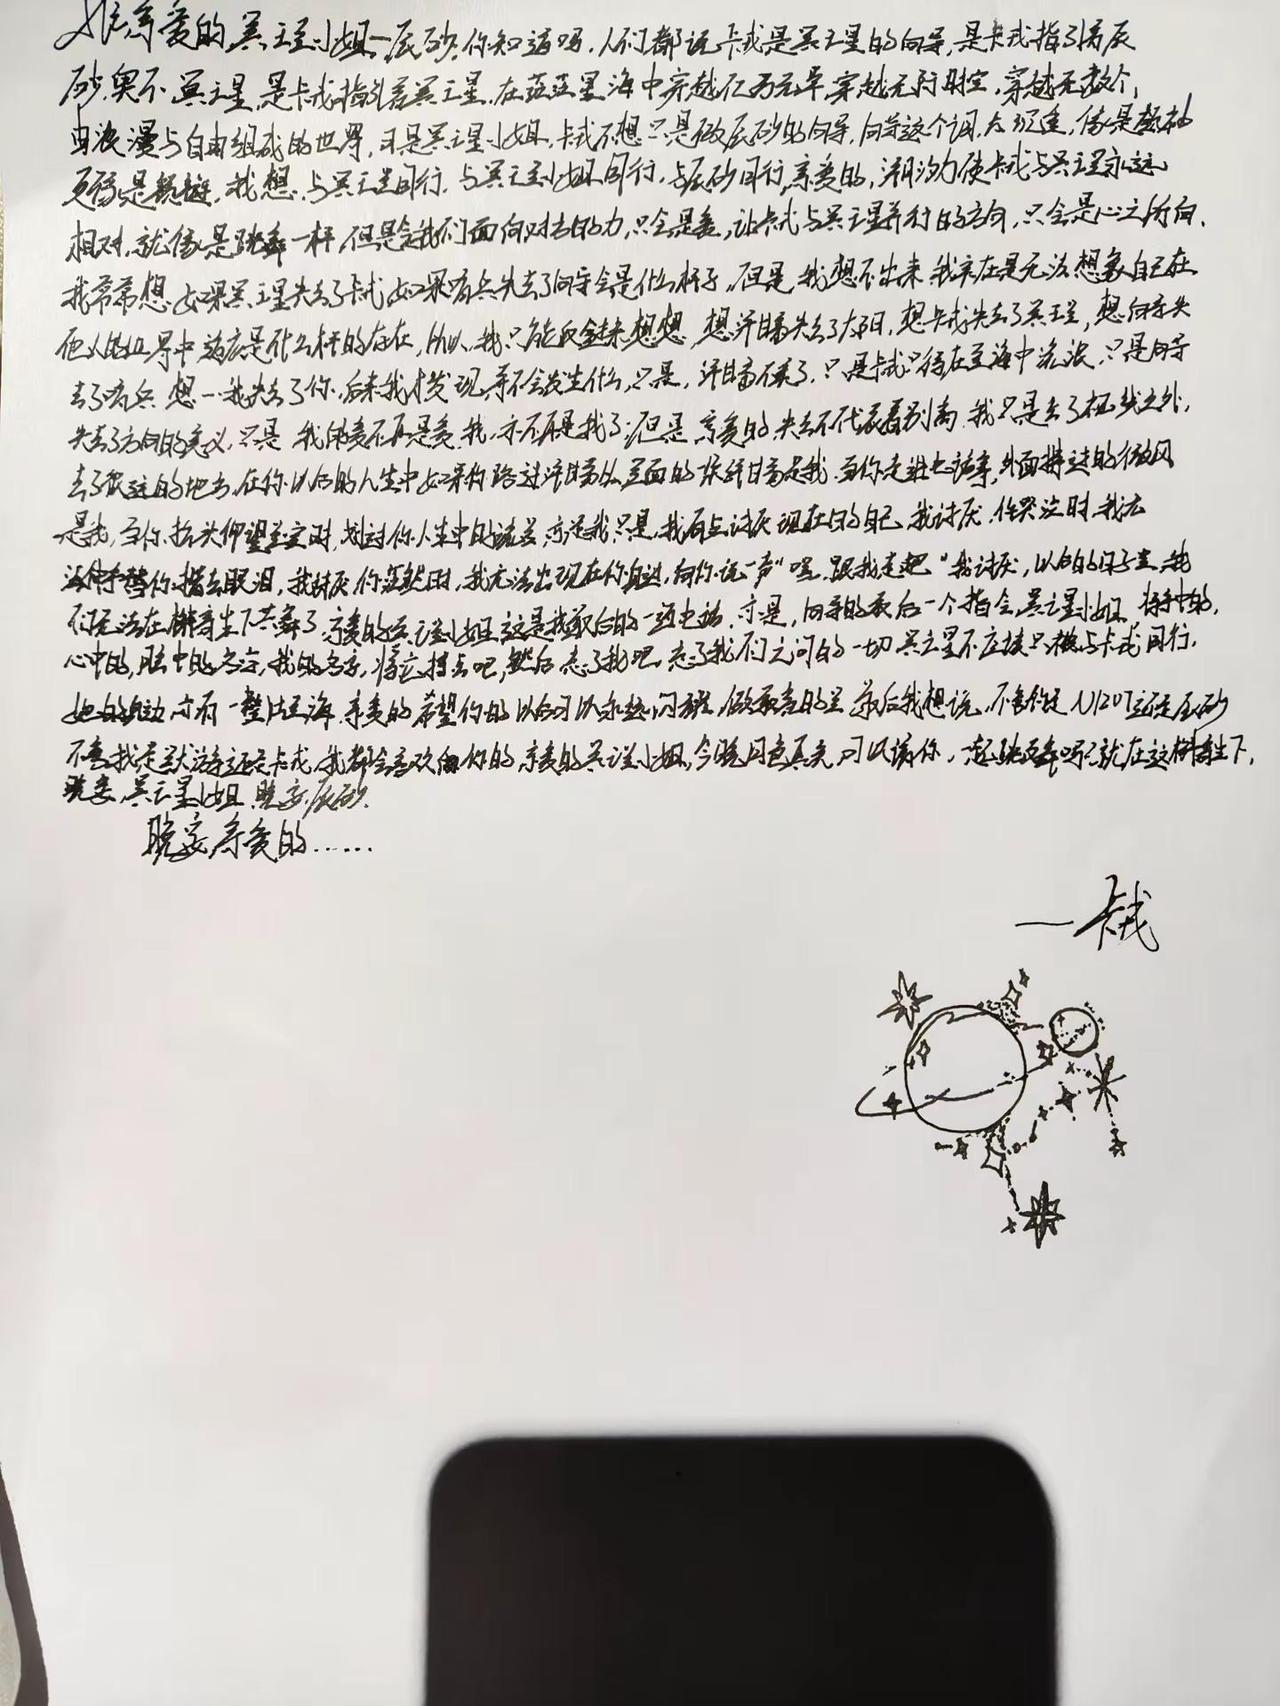 亲爱的冥王星小姐—辰砂.你知道吗,人们都说卡戎是冥王星的向导,是卡戎指引着辰
砂,奥不,冥王星,是卡戎指引着冥王星,在茫茫星海中穿越亿万光年,穿越无限时空,穿越无数个,
由浪漫与自由组成的世界,可是冥王星小姐,卡戎不想只是做辰砂的向导,向导这个词,太沉重,像是
更像是锁链,我想,与冥王星同行,与冥王星小姐同行,与辰砂同行,亲爱的,潮汐力使卡戎与冥王星永远
相对,就像是跳舞一样,但是令我们面向对方的力,只会是爱,让卡戎与冥王星并行的方向,只会是心之所向.
我常常想,如果冥王星失去了卡戎,如果哨兵失去了向导会是什么样子,但是,我想不出来,我实在是无法想象自己在
他人的世界中,该应是什么样的存在,所以,我只能反过来想想,想失去了太阳,想卡戎失去了冥王星,想向导失
去了哨兵,想—我失去了你,后来我才发现,并不会发生什么,只是,不了,只是卡戎只得在星海中流浪,只是向导
失去了方向的意义,只是,我的爱不再是爱,我,亦不再是我了,但是,亲爱的,失去不代表着别离,我只是去了视线之外,
去了很远的地方,在你以后的人生中如果你路过,是我,当你走进故事,外面拂过的微风
是我,当你抬头仰望星空时,划过你人生中的流星,亦是我,只是,我有点讨厌现在的自己,我讨厌,你哭泣时,我无
法伸手替你擦去眼泪,我讨厌你茫然时,我无法出现在你身边,向你说一声"嘿,跟我走吧"我讨厌,以后的日子里,我
们无法在槲寄生下共舞了,亲爱的冥王星小姐,这是我最后的一通电话,亦是,向导的最后一个指令,冥王星小姐,将的,
心中的,脑中的名字,我的名字,将它擦去吧,然后,忘了我吧,忘了我们之间的一切,冥王星不应该只能与卡戎同行,
她的身边,亦有一整片星海,亲爱的,希望你的以后可以永远闪耀,做最亮的星,最后我想说,不管你是还是辰砂
不管我是默游还是卡戎,我都会喜欢你的,亲爱的冥王星小姐,今晚月色真美,可以请你,一起跳支舞吗?就在这槲寄生下,
晚安,冥王星小姐,晚安,辰砂.
晚安,亲爱的......
—卡戎